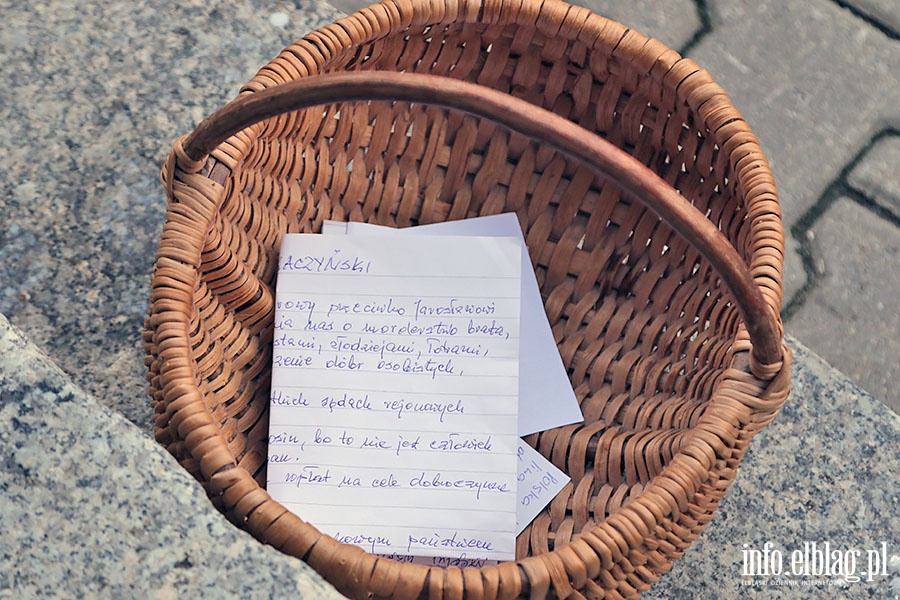 ACZYŃSKI
owy przeciwko Jarosławowi
nas o morderstwo brata,
stami, złodziejami, łotrami,
żenie dóbr osobistych,
tkich sądach rejonowych
osin, bo to nie jest człowiek
an.
wpłat na cele dobroczynne
nowym państwem
Polska
info.elblag.pl
ELBLĄSKI DZIENNIK INTERNETOWY